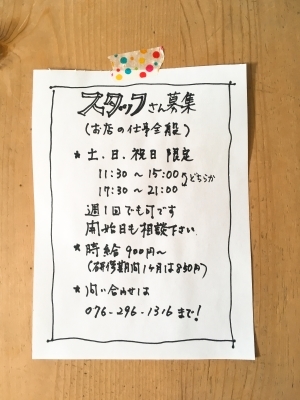 スタッフさん募集
(お店の仕事全般)
* 土、日、祝日 限定
11:30 ~ 15:00
17:30 ~ 21:00
どちらか
週1回でも可です
開始日も相談下さい
* 時給 900円~
(研修期間1ヶ月は850円)
* 問い合わせは
076-296-1316 まで!